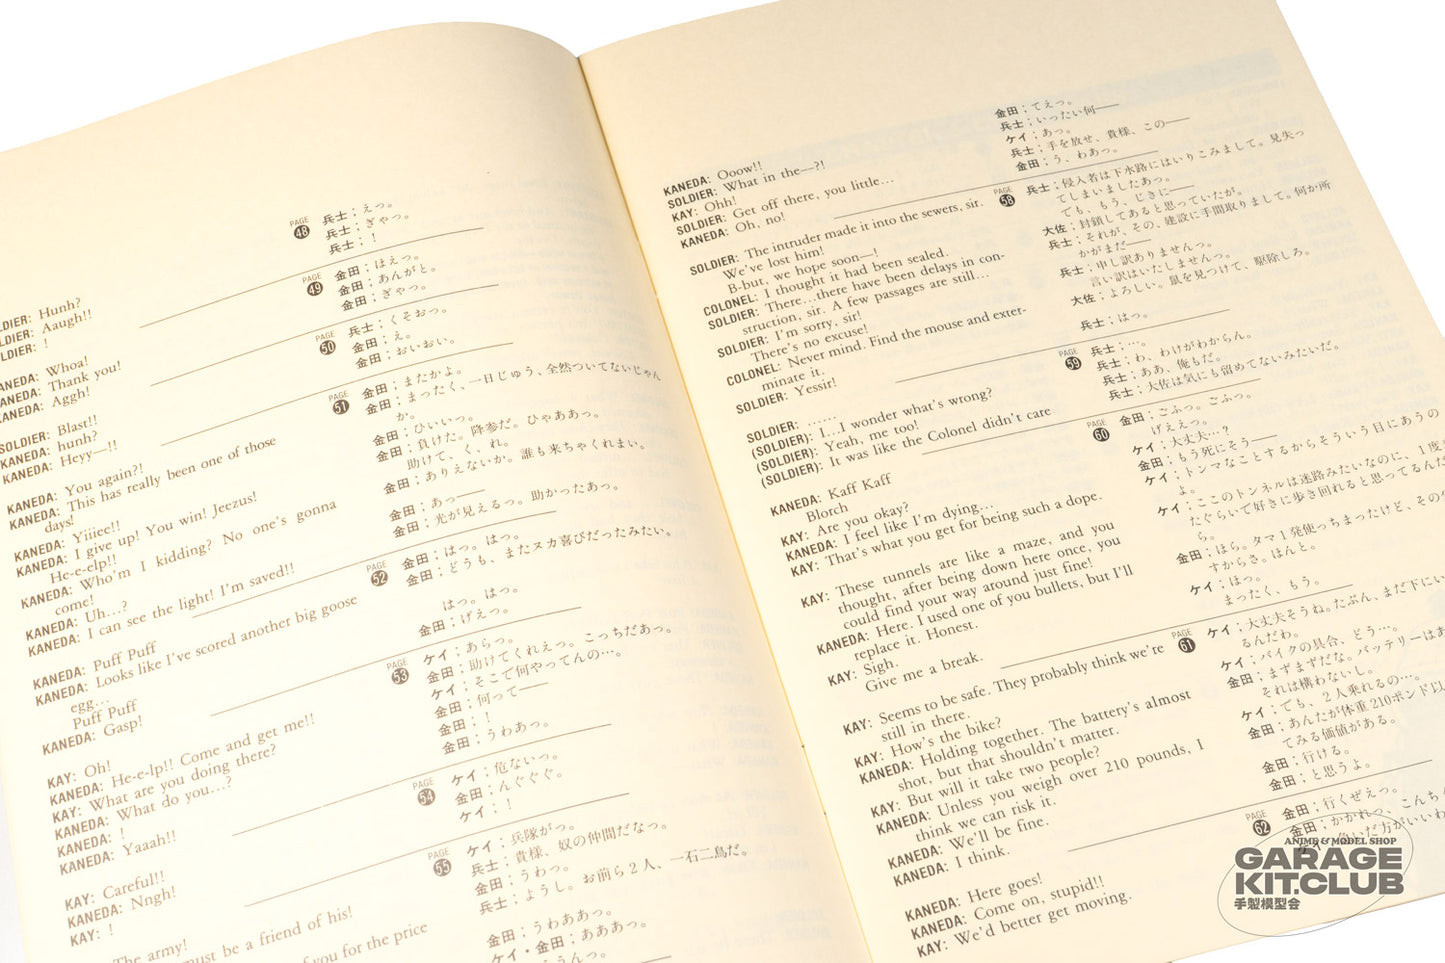 SOLDIER: Hunh?
SOLDIER: Aaugh!!
SOLDIER: !
PAGE
48
兵士；えっ。
兵士；ぎゃっ。
兵士；！
KANEDA: Whoa!
KANEDA: Thank you!
KANEDA: Aggh!
PAGE
49
金田；ほえっ。
金田；あんがと。
金田；ぎやっ。
SOLDIER: Blast!!
KANEDA: hunh?
KANEDA: Heyy—!!
PAGE
50
兵士；くそおっ。
金田；え。
金田；おいおい。
KANEDA: You again?!
KANEDA: This has really been one of those
days!
KANEDA: Yiiiee!!
KANEDA: I give up! You win! Jeezus!
He-e-elp!!
KANEDA: Who'm I kidding? No one's gonna
come!
KANEDA: Uh...?
KANEDA: I can see the light! I'm saved!!
PAGE
51
金田；またかよ。
金田；まったく、一日じゅう、全然ついてないじゃん
か。
金田；ひいいっ。
金田；負けた。降参だ。ひゃああっ。
助けて、く、れ。
金田；ありえないか。誰も来ちゃくれまい。
金田；あっ——
金田；光が見えるっ。助かったあっ。
KANEDA: Puff Puff
KANEDA: Looks like I've scored another big goose
egg...
Puff Puff
KANEDA: Gasp!
PAGE
52
金田；はっ。はっ。
金田；どうも、またヌカ喜びだったみたい。
はっ。はっ。
金田；げえっ。
KAY: Oh!
KANEDA: He-e-lp!! Come and get me!!
KAY: What are you doing there?
KANEDA: What do you...?
KANEDA: !
KANEDA: Yaaah!!
PAGE
53
ケイ；あらっ。
金田；助けてくれえっ。こっちだあっ。
ケイ；そこで何やってんの…。
金田；何って——
金田；！
金田；うわあっ。
KAY: Careful!!
KANEDA: Nngh!
KAY: !
PAGE
54
ケイ；危ないっ。
金田；んぐぐぐ。
ケイ；！
The army!
must be a friend of his!
you for the price
PAGE
55
ケイ；兵隊がっ。
兵士；貴様、奴の仲間だなっ。
金田；うわっ。
兵士；ようし。お前ら２人、一石二鳥だ。
金田；うわああっ。
ケイ・金田；あああっ。
KANEDA: Ooow!!
SOLDIER: What in the—?!
KAY: Ohh!
SOLDIER: Get off there, you little...
KANEDA: Oh, no!
金田；てえっ。
兵士；いったい何——
ケイ；あっ。
兵士；手を放せ、貴様、この——
金田；う、わあっ。
SOLDIER: The intruder made it into the sewers, sir.
We've lost him!
B-but, we hope soon—!
COLONEL: I thought it had been sealed.
SOLDIER: There...there have been delays in con-
struction, sir. A few passages are still...
SOLDIER: I'm sorry, sir!
There's no excuse!
COLONEL: Never mind. Find the mouse and exter-
minate it.
SOLDIER: Yessir!
PAGE
58
兵士；侵入者は下水路にはいりこみまして。見失っ
てしまいましたあっ。
でも、もう、じきに——
大佐；封鎖してあると思っていたが。
兵士；それが、その、建設に手間取りまして。何か所
かがまだ——
兵士；申し訳ありませんっ。
言い訳はいたしませんっ。
大佐；よろしい。鼠を見つけて、駆除しろ。
兵士；はっ。
SOLDIER: ......
(SOLDIER): I...I wonder what's wrong?
(SOLDIER): Yeah, me too!
(SOLDIER): It was like the Colonel didn't care
PAGE
59
兵士；…。
兵士；わ、わけがわからん。
兵士；ああ、俺もだ。
兵士；大佐は気にも留めてないみたいだ。
KANEDA: Kaff Kaff
Blorch
KAY: Are you okay?
KANEDA: I feel like I'm dying...
KAY: That's what you get for being such a dope.
KAY: These tunnels are like a maze, and you
thought, after being down here once, you
could find your way around just fine!
KANEDA: Here. I used one of you bullets, but I'll
replace it. Honest.
KAY: Sigh.
Give me a break.
PAGE
60
金田；ごふっ。ごふっ。
げええっ。
ケイ；大丈夫…？
金田；もう死にそう——
ケイ；トンマなことするからそういう目にあうの
よ。
ケイ；ここのトンネルは迷路みたいなのに、１度
たぐらいで好きに歩き回れると思ってるんだ
ら。
金田；ほら。タマ１発使っちまったけど、その
すからさ。ほんと。
ケイ；ほっ。
まったく、もう。
KAY: Seems to be safe. They probably think we're
still in there.
KAY: How's the bike?
KANEDA: Holding together. The battery's almost
shot, but that shouldn't matter.
KAY: But will it take two people?
KANEDA: Unless you weigh over 210 pounds, I
think we can risk it.
KANEDA: We'll be fine.
KANEDA: I think.
PAGE
61
ケイ；大丈夫そうね。たぶん、まだ下にい
るんだわ。
ケイ；バイクの具合、どう…。
金田；まずまずだな。バッテリーはあ
それは構わないし。
ケイ；でも、２人乗れるの…。
金田；あんたが体重210ポンド以
てみる価値がある。
金田；行ける。
金田；と思うよ。
KANEDA: Here goes!
KANEDA: Come on, stupid!!
KAY: We'd better get moving.
PAGE
62
金田；行くぜえっ。
金田；かかれっ、こんち
ANIME & MODEL SHOP
GARAGE
KIT.CLUB
手製模型会